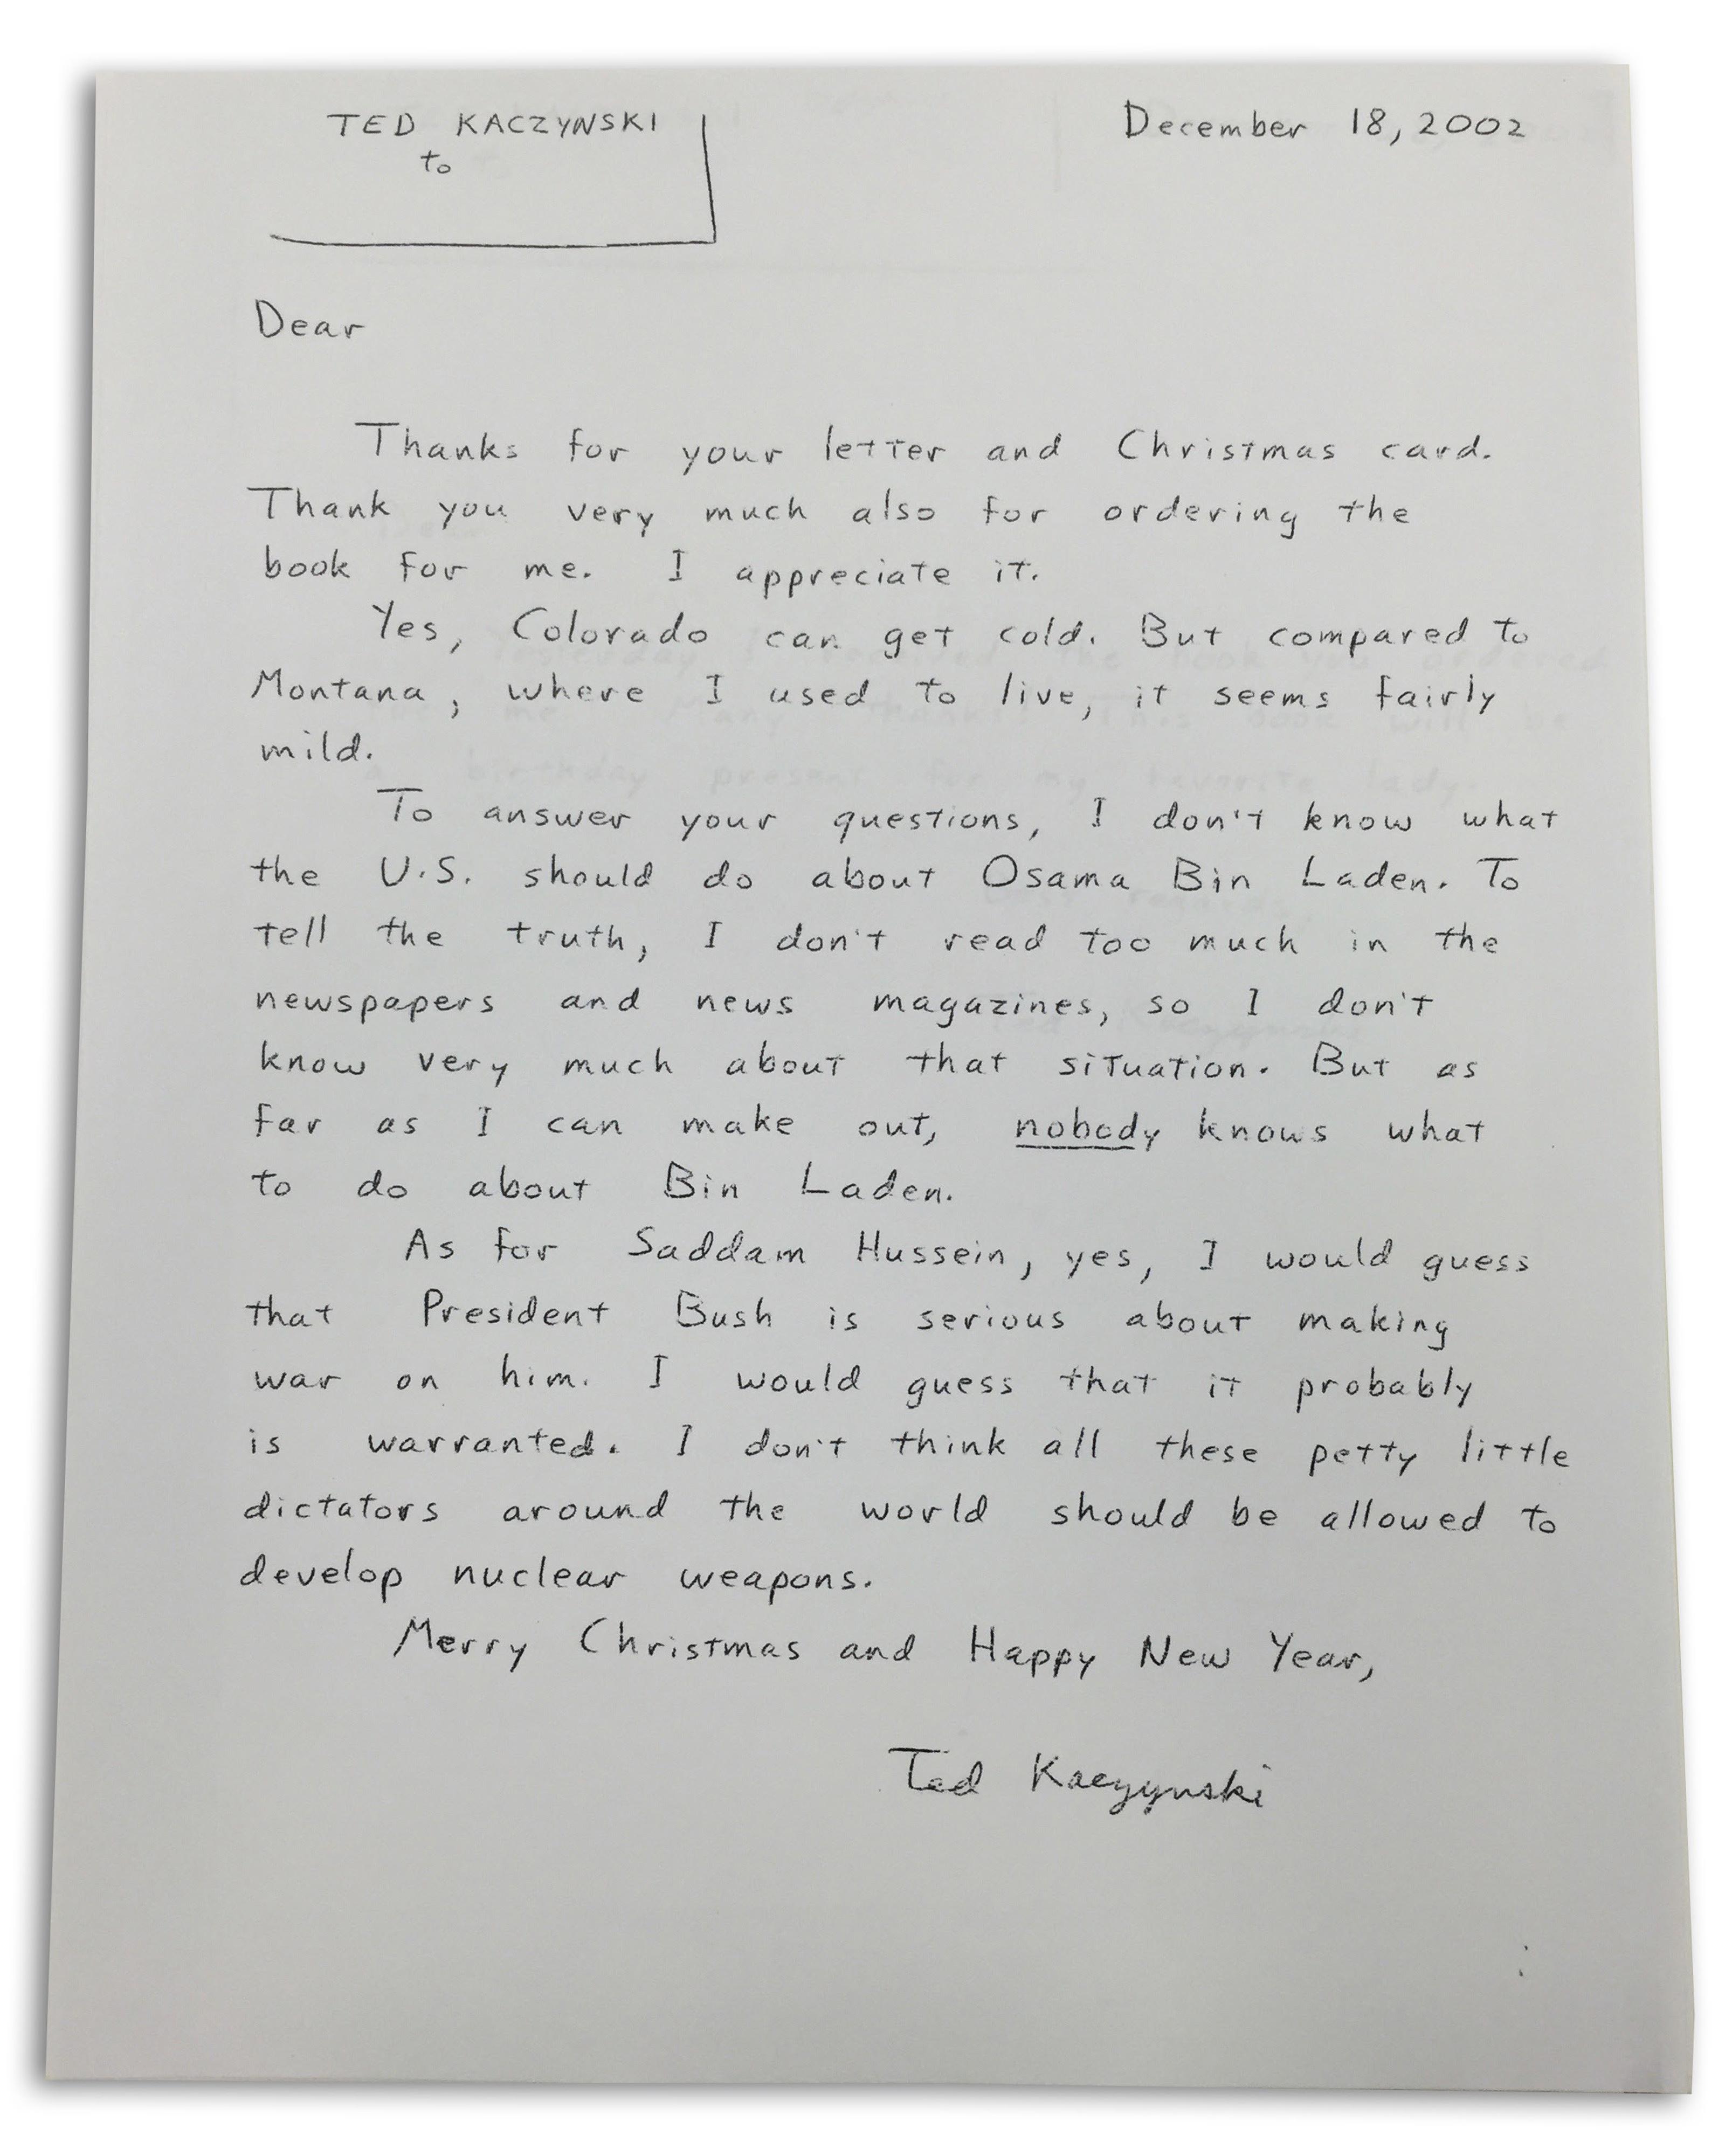 TED KACZYNSKI
to
December 18, 2002
Dear
Thanks for your letter and Christmas card.
Thank you very much also for ordering the
book for me. I appreciate it.
Yes, Colorado can get cold. But compared to
Montana, where I used to live, it seems fairly
mild.
To answer your questions, I don't know what
the U.S. should do about Osama Bin Laden. To
tell the truth, I don't read too much in the
newspapers and news magazines, so I don't
know very much about that situation. But as
far as I can make out, nobody knows what
to do about Bin Laden.
As for Saddam Hussein, yes, I would guess
that President Bush is serious about making
war on him. I would guess that it probably
is warranted. I don't think all these petty little
dictators around the world should be allowed to
develop nuclear weapons.
Merry Christmas and Happy New Year,
Ted Kaczynski